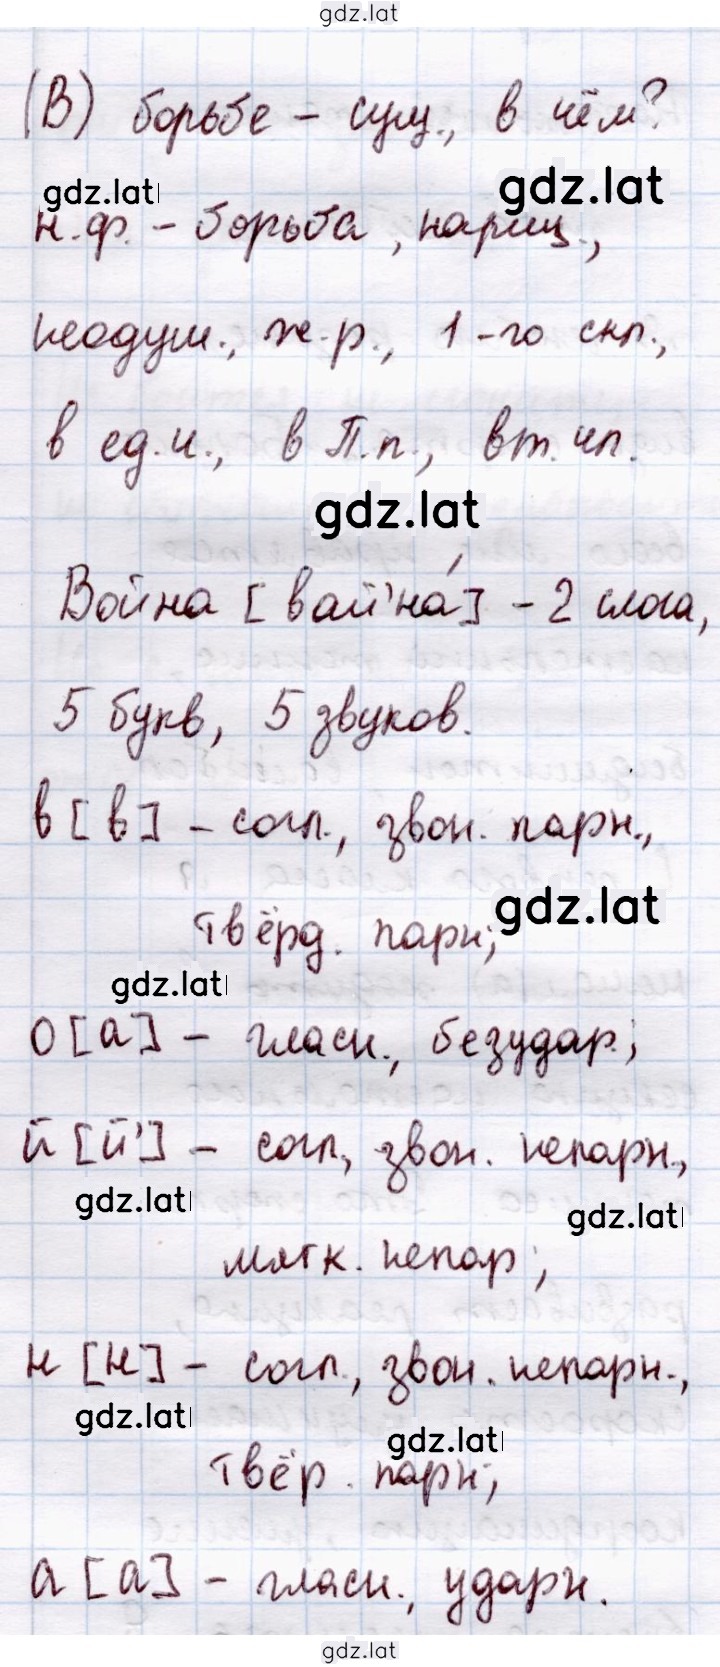 gdz.lat
(В) борьбе - сущ., в чём?
gdz.lat gdz.lat
н.ф. - борьба, нариц.,
неодуш., ж.р., 1-го скл.,
в ед.ч., в П.п., вт. чл.
gdz.lat
Война [вай'на́] - 2 слога,
5 букв, 5 звуков.
в [в] - согл., звон. парн.,
gdz.lat
твёрд. парн;
gdz.lat
о [а] - гласн., безудар.;
й [й'] - согл., звон. непарн.,
gdz.lat gdz.lat
мягк. непар;
н [н] - согл., звон. непарн.,
gdz.lat gdz.lat
твёр. парн;
а [а] - гласн., ударн.
gdz.lat